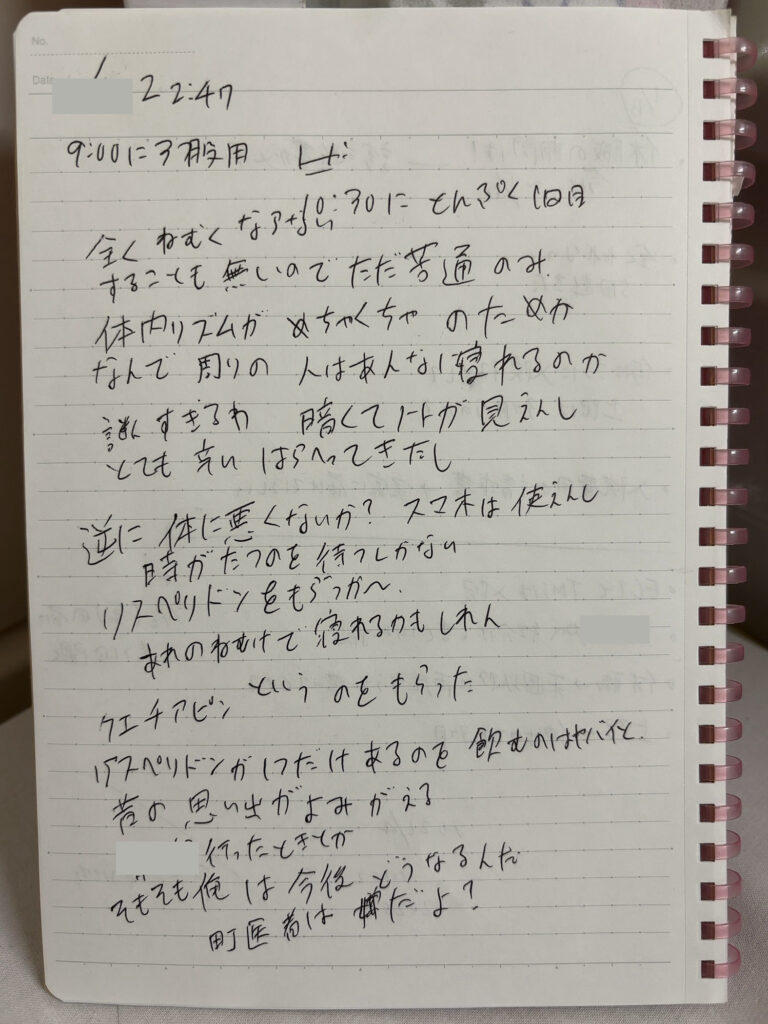 No.
Date
/ 22:47
9:00に3服用
全くねむくなァない 10:30に とんぷく1回目
することも無いので ただ苦通のみ
体内リズムが めちゃくちゃ のためか
なんで 周りの 人はあんなに寝れるのか
謎すぎるわ 暗くてノートが見えんし
とても辛い はらへってきたし
逆に 体に悪くないか? スマホは使えんし
時がたつのを待つしかない
リスペリドンをもらうか〜.
あれのねむけで寝れるかもしれん
クエチアピン というのをもらった
リスペリドンが1つだけあるのを飲むのはヤバイと.
昔の思い出がよみがえる
行ったときとか
そもそも俺は今後どうなるんだ
町医者は だよ?